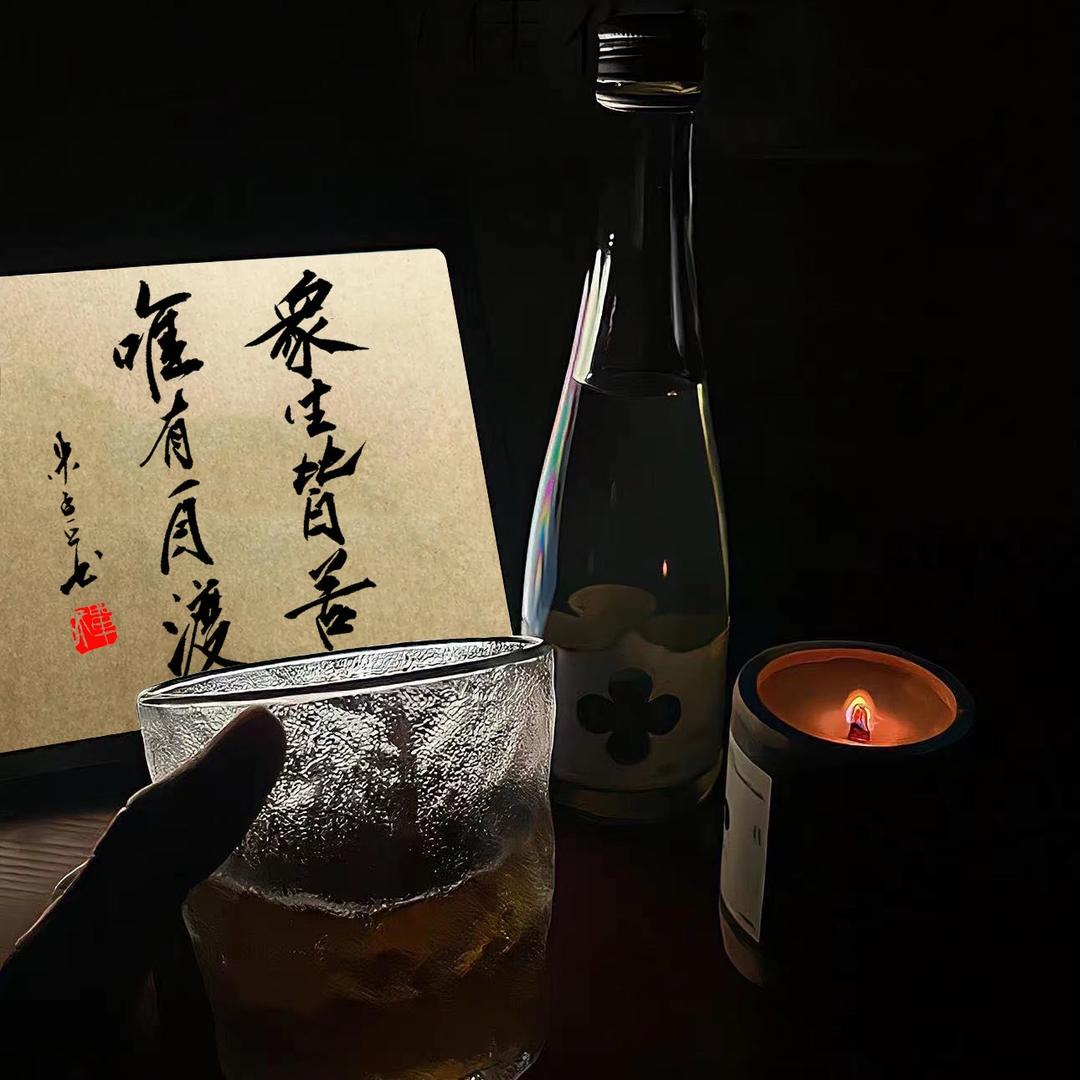 衆生皆苦
唯有自渡